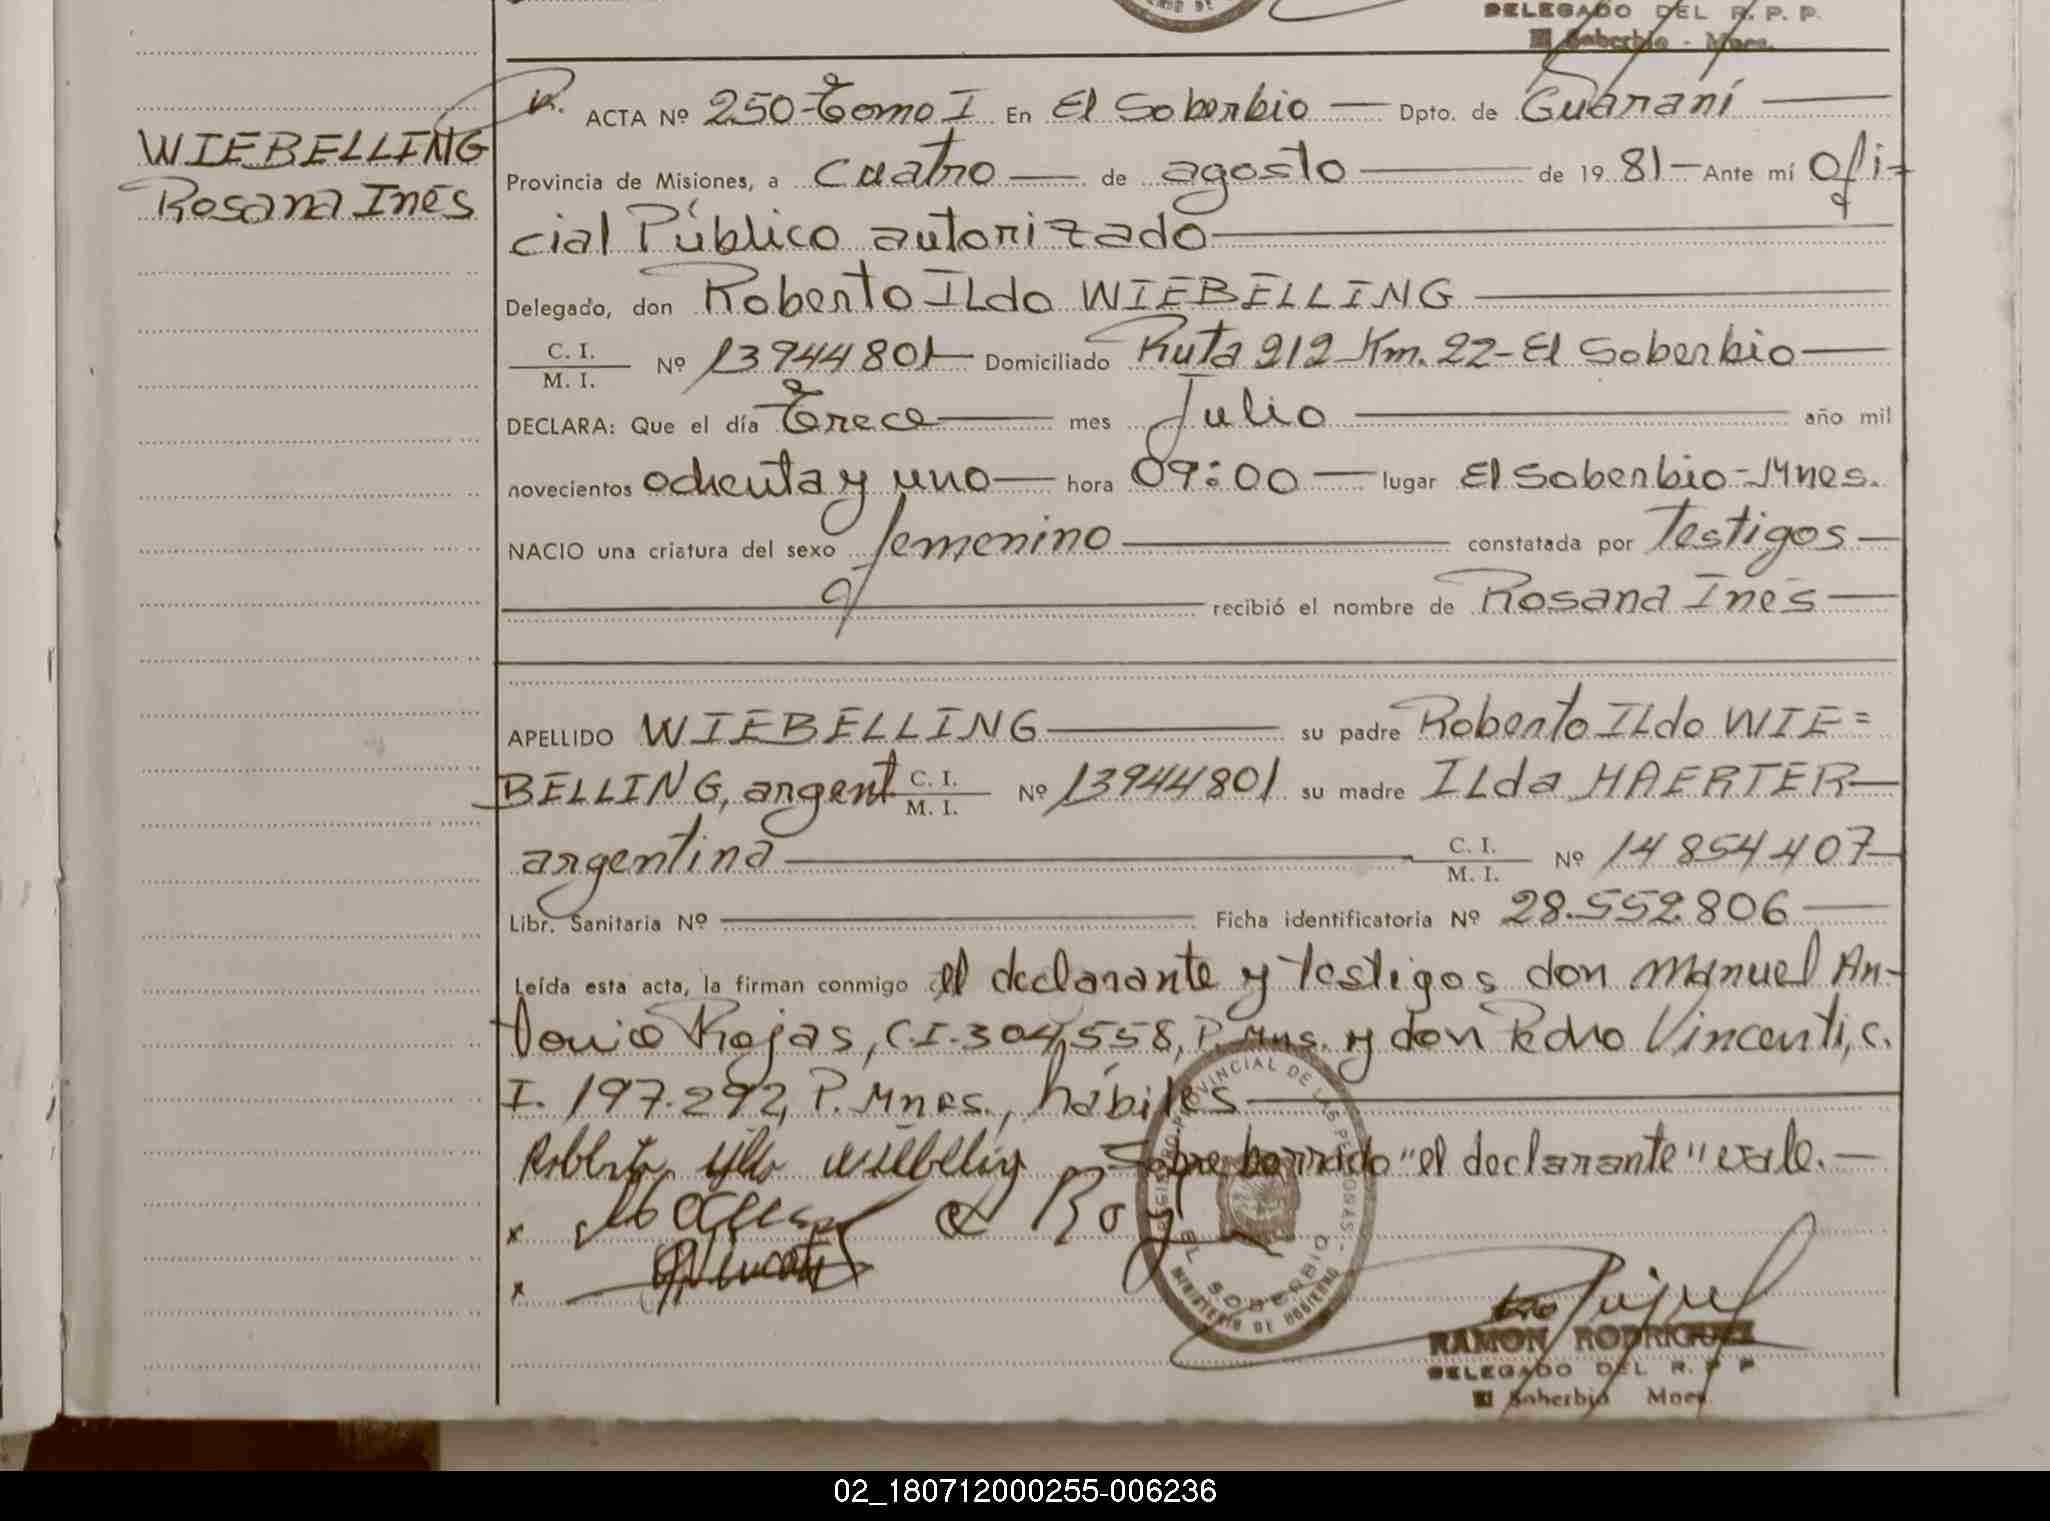 DELEGADO DEL R. P. P.
El Soberbio - Mnes.
WIEBELLING
Rosana Inés
N. ACTA Nº 250-Tomo I En El Soberbio — Dpto. de Guaraní —
Provincia de Misiones, a cuatro — de agosto — de 19 81 — Ante mí Ofi-
cial Público autorizado —
Delegado, don Roberto ILdo WIEBELLING —
C. I.
M. I. Nº 13944801 — Domiciliado Ruta 212 Km. 22-El Soberbio —
DECLARA: Que el día Trece — mes Julio — año mil
novecientos ochenta y uno — hora 09:00 — lugar El Soberbio-Mnes.
NACIO una criatura del sexo femenino — constatada por Testigos —
— recibió el nombre de Rosana Inés —
APELLIDO WIEBELLING — su padre Roberto ILdo WIE=
BELLING, argent C. I. M. I. Nº 13944801 su madre ILda HAERTER —
argentina — C. I. M. I. Nº 14854407 —
Libr. Sanitaria Nº — Ficha identificatoria Nº 28.552.806 —
Leída esta acta, la firman conmigo el declarante y testigos don Manuel An-
tonio Rojas, C.I. 304,558, P. Mns. y don Pedro Vincenti, c.
I. 197.292, P. Mnes., hábiles —
Sobre borrado "el declarante" vale. —
REGISTRO PROVINCIAL DE LAS PERSONAS
EL SOBERBIO
MINISTERIO DE GOBIERNO
RAMON RODRIGUEZ
DELEGADO DEL R. P. P.
El Soberbio Mnes.
02_180712000255-006236